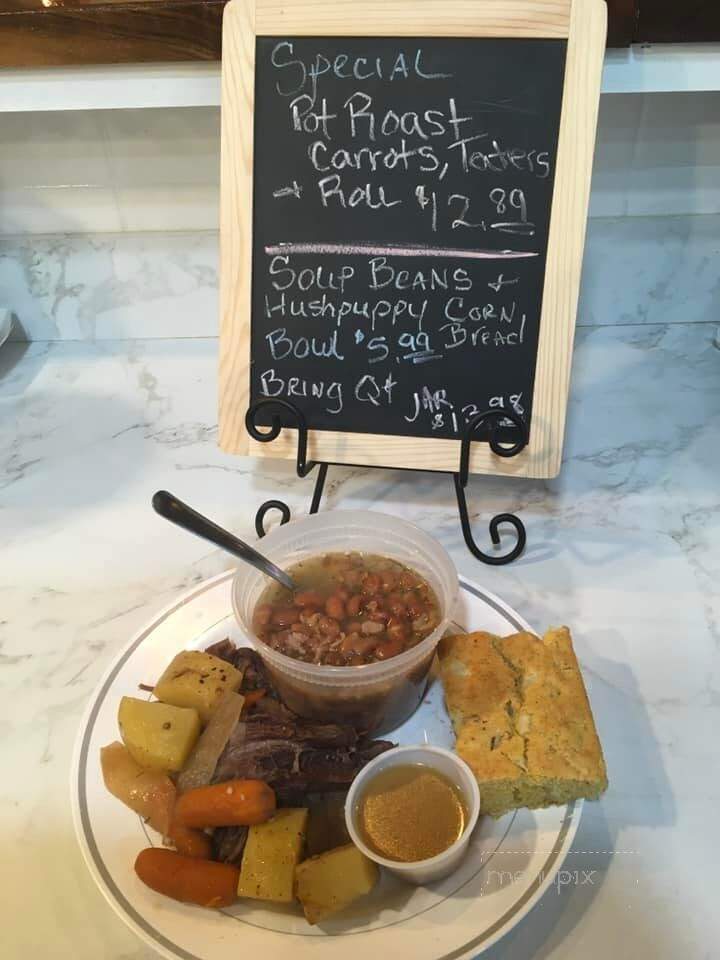 Special
Pot Roast
Carrots, Taters
+ Roll $12.89
Soup Beans +
Hushpuppy Corn
Bowl $5.99 Bread
Bring Qt Jar
$12.98
menupix